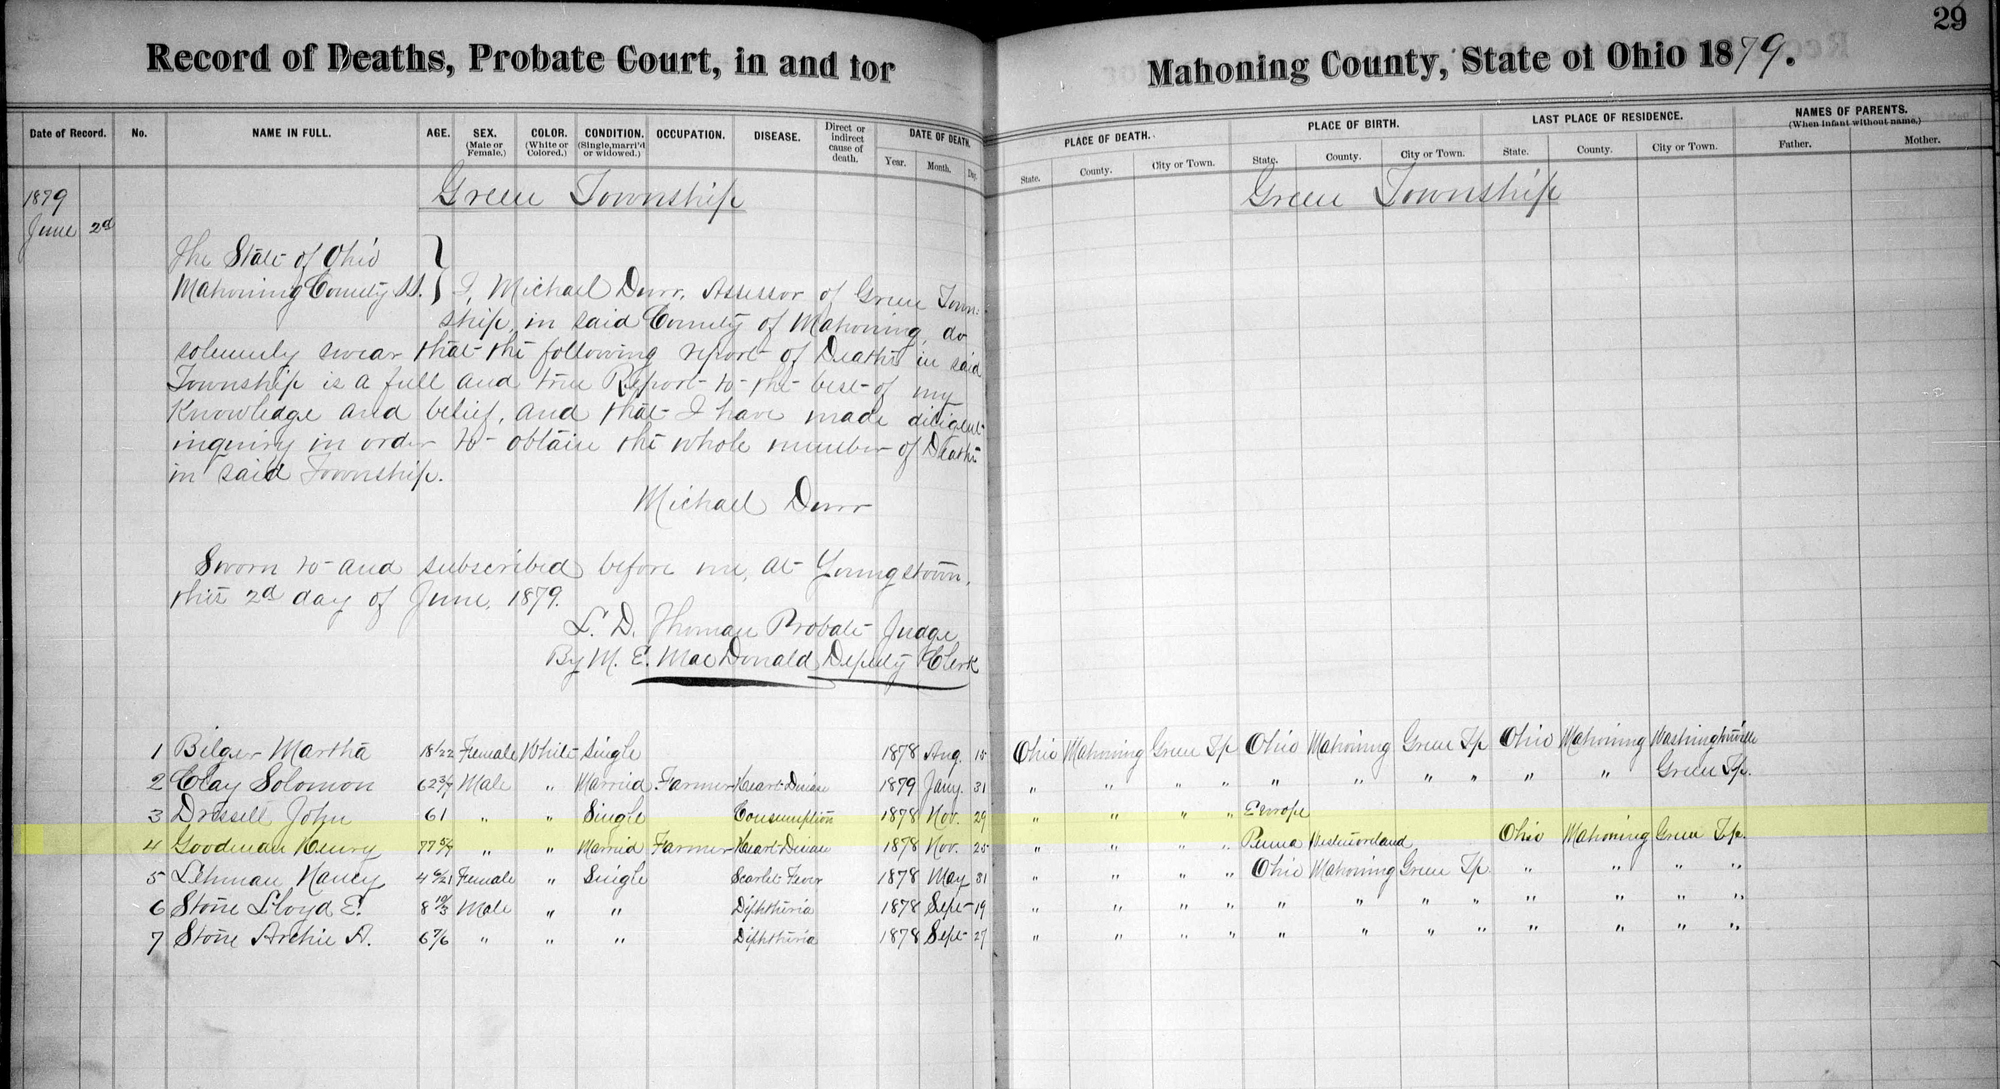 29
Record of Deaths, Probate Court, in and for Mahoning County, State of Ohio 1879.
Date of Record. No. NAME IN FULL. AGE. SEX. (Male or Female.) COLOR. (White or Colored.) CONDITION. (Single, marri'd or widowed.) OCCUPATION. DISEASE. Direct or indirect cause of death. DATE OF DEATH. Year. Month. Day. PLACE OF DEATH. State. County. City or Town. PLACE OF BIRTH. State. County. City or Town. LAST PLACE OF RESIDENCE. State. County. City or Town. NAMES OF PARENTS. (When infant without name.) Father. Mother.
1879 Green Township Green Township
June 2d
The State of Ohio
Mahoning County SS. } I, Michael Durr, Assessor of Green Town-
ship, in said County of Mahoning, do
solemnly swear that the following report of Deaths in said
Township is a full and true Report to the best of my
Knowledge and belief, and that I have made diligent
inquiry in order to obtain the whole number of Deaths
in said Township.
Michael Durr
Sworn to and subscribed before me, at Youngstown,
this 2d day of June, 1879.
L. D. Thoman Probate Judge
By M. E. MacDonald Deputy Clerk
1 Bilger Martha 18 1/22 Female White Single 1878 Aug. 15 Ohio Mahoning Green Tp Ohio Mahoning Green Tp Ohio Mahoning Washingtonville
2 Clay Solomon 62 Male " Married Farmer Heart Disease 1879 Jany. 31 " " " " " " " " " " Green Tp.
3 Drissell John 61 " " Single Consumption 1878 Nov. 29 " " " " Europe
4 Goodman Henry 77 " " Married Farmer Heart Disease 1878 Nov. 25 " " " " Penna Westmoreland Ohio Mahoning Green Tp.
5 Lehman Nancy 4 Female " Single Scarlet Fever 1878 May 31 " " " " Ohio Mahoning Green Tp. " " " "
6 Stone Lloyd E. 8 Male " " Diphtheria 1878 Sept 19 " " " " " " " " " " " "
7 Stone Archie A. 6 7/6 " " " Diphtheria 1878 Sept 27 " " " " " " " " " " " "